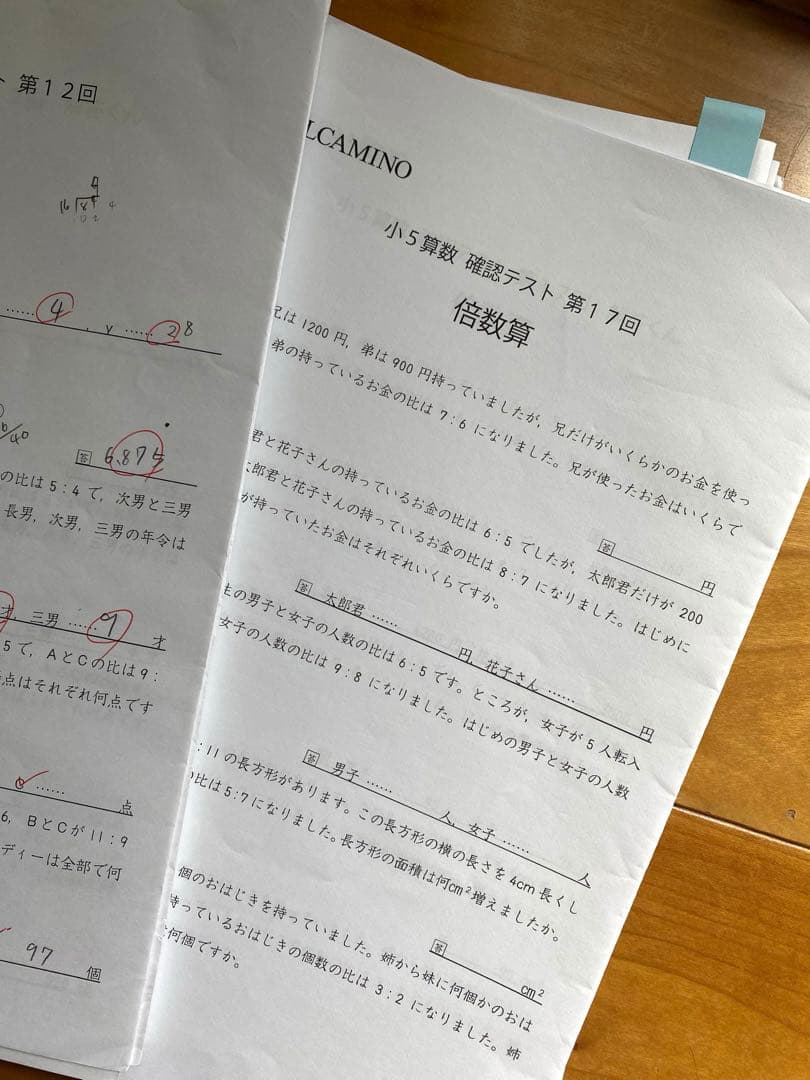 第12回
4
16
8
4
…… 4 , y …… 28
答 6.875
の比は5:4で，次男と三男
長男，次男，三男の年令は
才，三男 …… 9 才
5て，AとCの比は9:
点はそれぞれ何点です
…… 点
6，BとCが11:9
ディーは全部で何
97 個
LCAMINO
小5算数 確認テスト 第17回
倍数算
兄は1200円，弟は900円持っていましたが，兄だけがいくらかのお金を使っ
弟の持っているお金の比は7:6になりました。兄が使ったお金はいくらで
答 円
君と花子さんの持っているお金の比は6:5でしたが，太郎君だけが200
太郎君と花子さんの持っているお金の比は8:7になりました。はじめに
が持っていたお金はそれぞれいくらですか。
答 太郎君 …… 円，花子さん …… 円
の男子と女子の人数の比は6:5です。ところが，女子が5人転入
女子の人数の比は9:8になりました。はじめの男子と女子の人数
答 男子 …… 人，女子 …… 人
:11の長方形があります。この長方形の横の長さを4cm長くし
の比は5:7になりました。長方形の面積は何cm²増えましたか。
答 cm²
個のおはじきを持っていました。姉から妹に何個かのおは
持っているおはじきの個数の比は3:2になりました。姉
何個ですか。